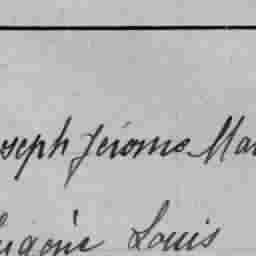 oseph Jérome Mar
Eugène Louis